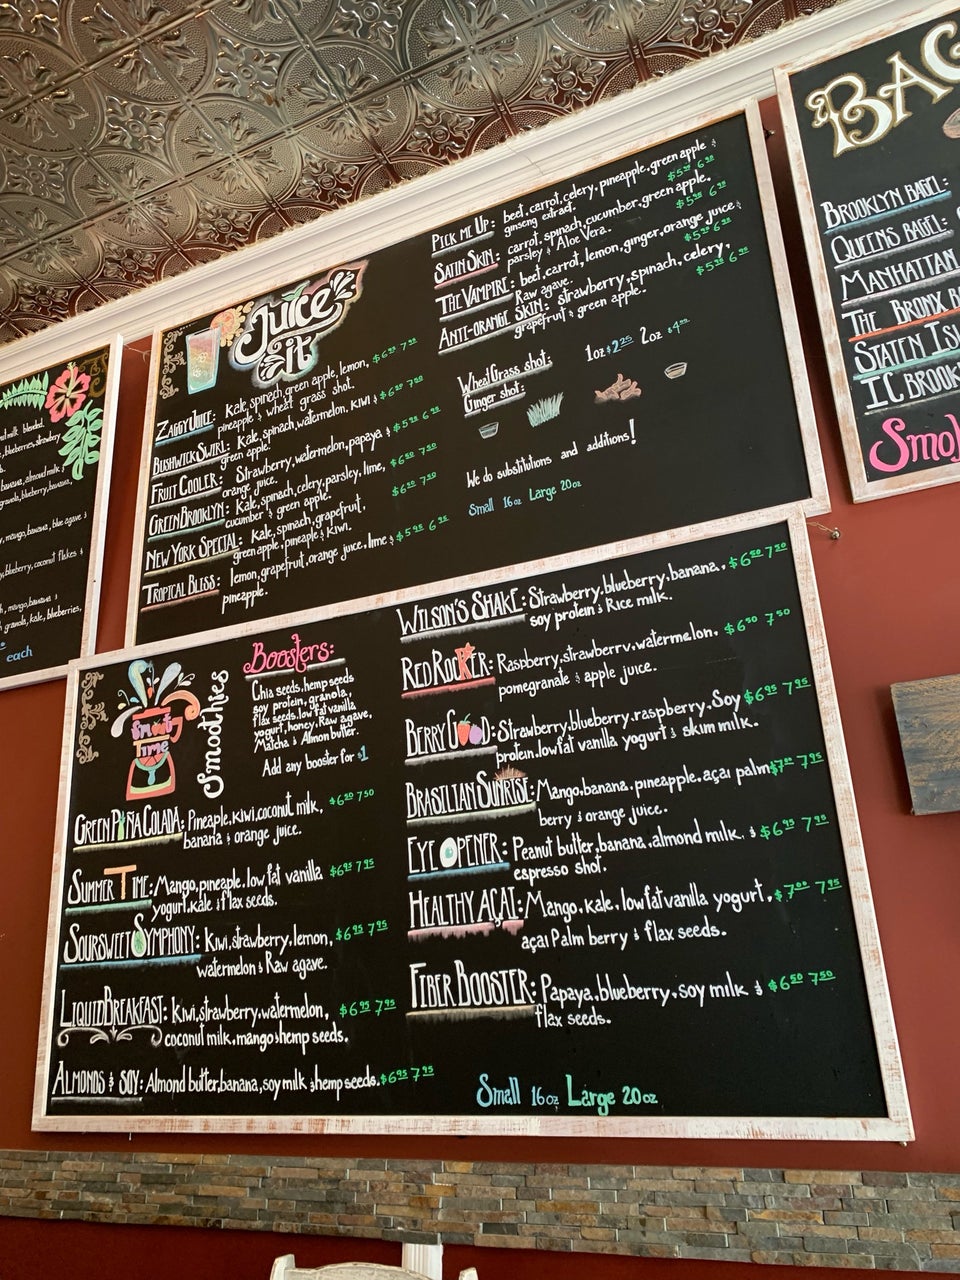 milk blended.
blueberries, strawberry
banana, almond milk &
granola, blueberry, banana,
mango, banana, blue agave &
blueberry, coconut flakes &
mango, banana &
granola, kale, blueberries,
each
Juice it
ZAGGY JUICE: Kale, spinach, green apple, lemon, $6.50 7.50
pineapple & wheat grass shot.
BUSHWICK SWIRL: Kale, spinach, watermelon, kiwi & $6.50 7.00
green apple.
FRUIT COOLER: Strawberry, watermelon, papaya & $5.95 6.95
orange juice.
GREEN BROOKLYN: Kale, spinach, celery, parsley, lime, $6.50 7.50
cucumber & green apple.
NEW YORK SPECIAL: Kale, spinach, grapefruit, $6.50 7.50
green apple, pineaple & kiwi.
TROPICAL BLISS: lemon, grapefruit, orange juice, lime & $5.95 6.95
pineapple.
PICK ME UP: beet, carrot, celery, pineapple, green apple &
ginseng extract. $5.95 6.95
SATIN SKIN: carrot, spinach, cucumber, green apple,
parsley & Aloe Vera. $5.95 6.95
THE VAMPIRE: beet, carrot, lemon, ginger, orange juice &
Raw agave. $5.95 6.95
ANTI-ORANGE SKIN: strawberry, spinach, celery, $5.95 6.95
grapefruit & green apple.
WheatGrass shot: 1oz $2.25 2oz $4.00
Ginger shot:
We do substitutions and additions!
Small 16oz Large 20oz
BAG
BROOKLYN BAGEL:
QUEENS BAGEL:
MANHATTAN
THE BRONX B
STATEN ISL
IC BROOK
Smo
Fruity Time
Smoothies
Boosters:
Chia seeds, hemp seeds
soy protein, granola,
flax seeds, low fat vanilla
yogurt, honey, Raw agave,
Matcha & Almon butter.
Add any booster for $1
GREEN PIÑA COLADA: Pineaple, kiwi, coconut milk, $6.50 7.50
banana & orange juice.
SUMMER TIME: Mango, pineaple, low fat vanilla $6.95 7.95
yogurt, kale & flax seeds.
SOURSWEET SYMPHONY: Kiwi, strawberry, lemon, $6.95 7.95
watermelon & Raw agave.
LIQUID BREAKFAST: Kiwi, strawberry, watermelon, $6.95 7.95
coconut milk, mango & hemp seeds.
ALMONDS & SOY: Almond butter, banana, soy milk & hemp seeds. $6.95 7.95
WILSON'S SHAKE: Strawberry, blueberry, banana, $6.50 7.50
soy protein & Rice milk.
RED ROCKER: Raspberry, strawberry, watermelon, $6.50 7.50
pomegranate & apple juice.
BERRY GOOD: Strawberry, blueberry, raspberry, Soy $6.95 7.95
protein, low fat vanilla yogurt & skim milk.
BRASILIAN SUNRISE: Mango, banana, pineapple, açaı palm $7.00 7.95
berry & orange juice.
EYE OPENER: Peanut butter, banana, almond milk, & $6.95 7.95
espresso shot.
HEALTHY AÇAI: Mango, kale, low fat vanilla yogurt, $7.00 7.95
açaı Palm berry & flax seeds.
FIBER BOOSTER: Papaya, blueberry, soy milk & $6.50 7.50
flax seeds.
Small 16oz Large 20oz